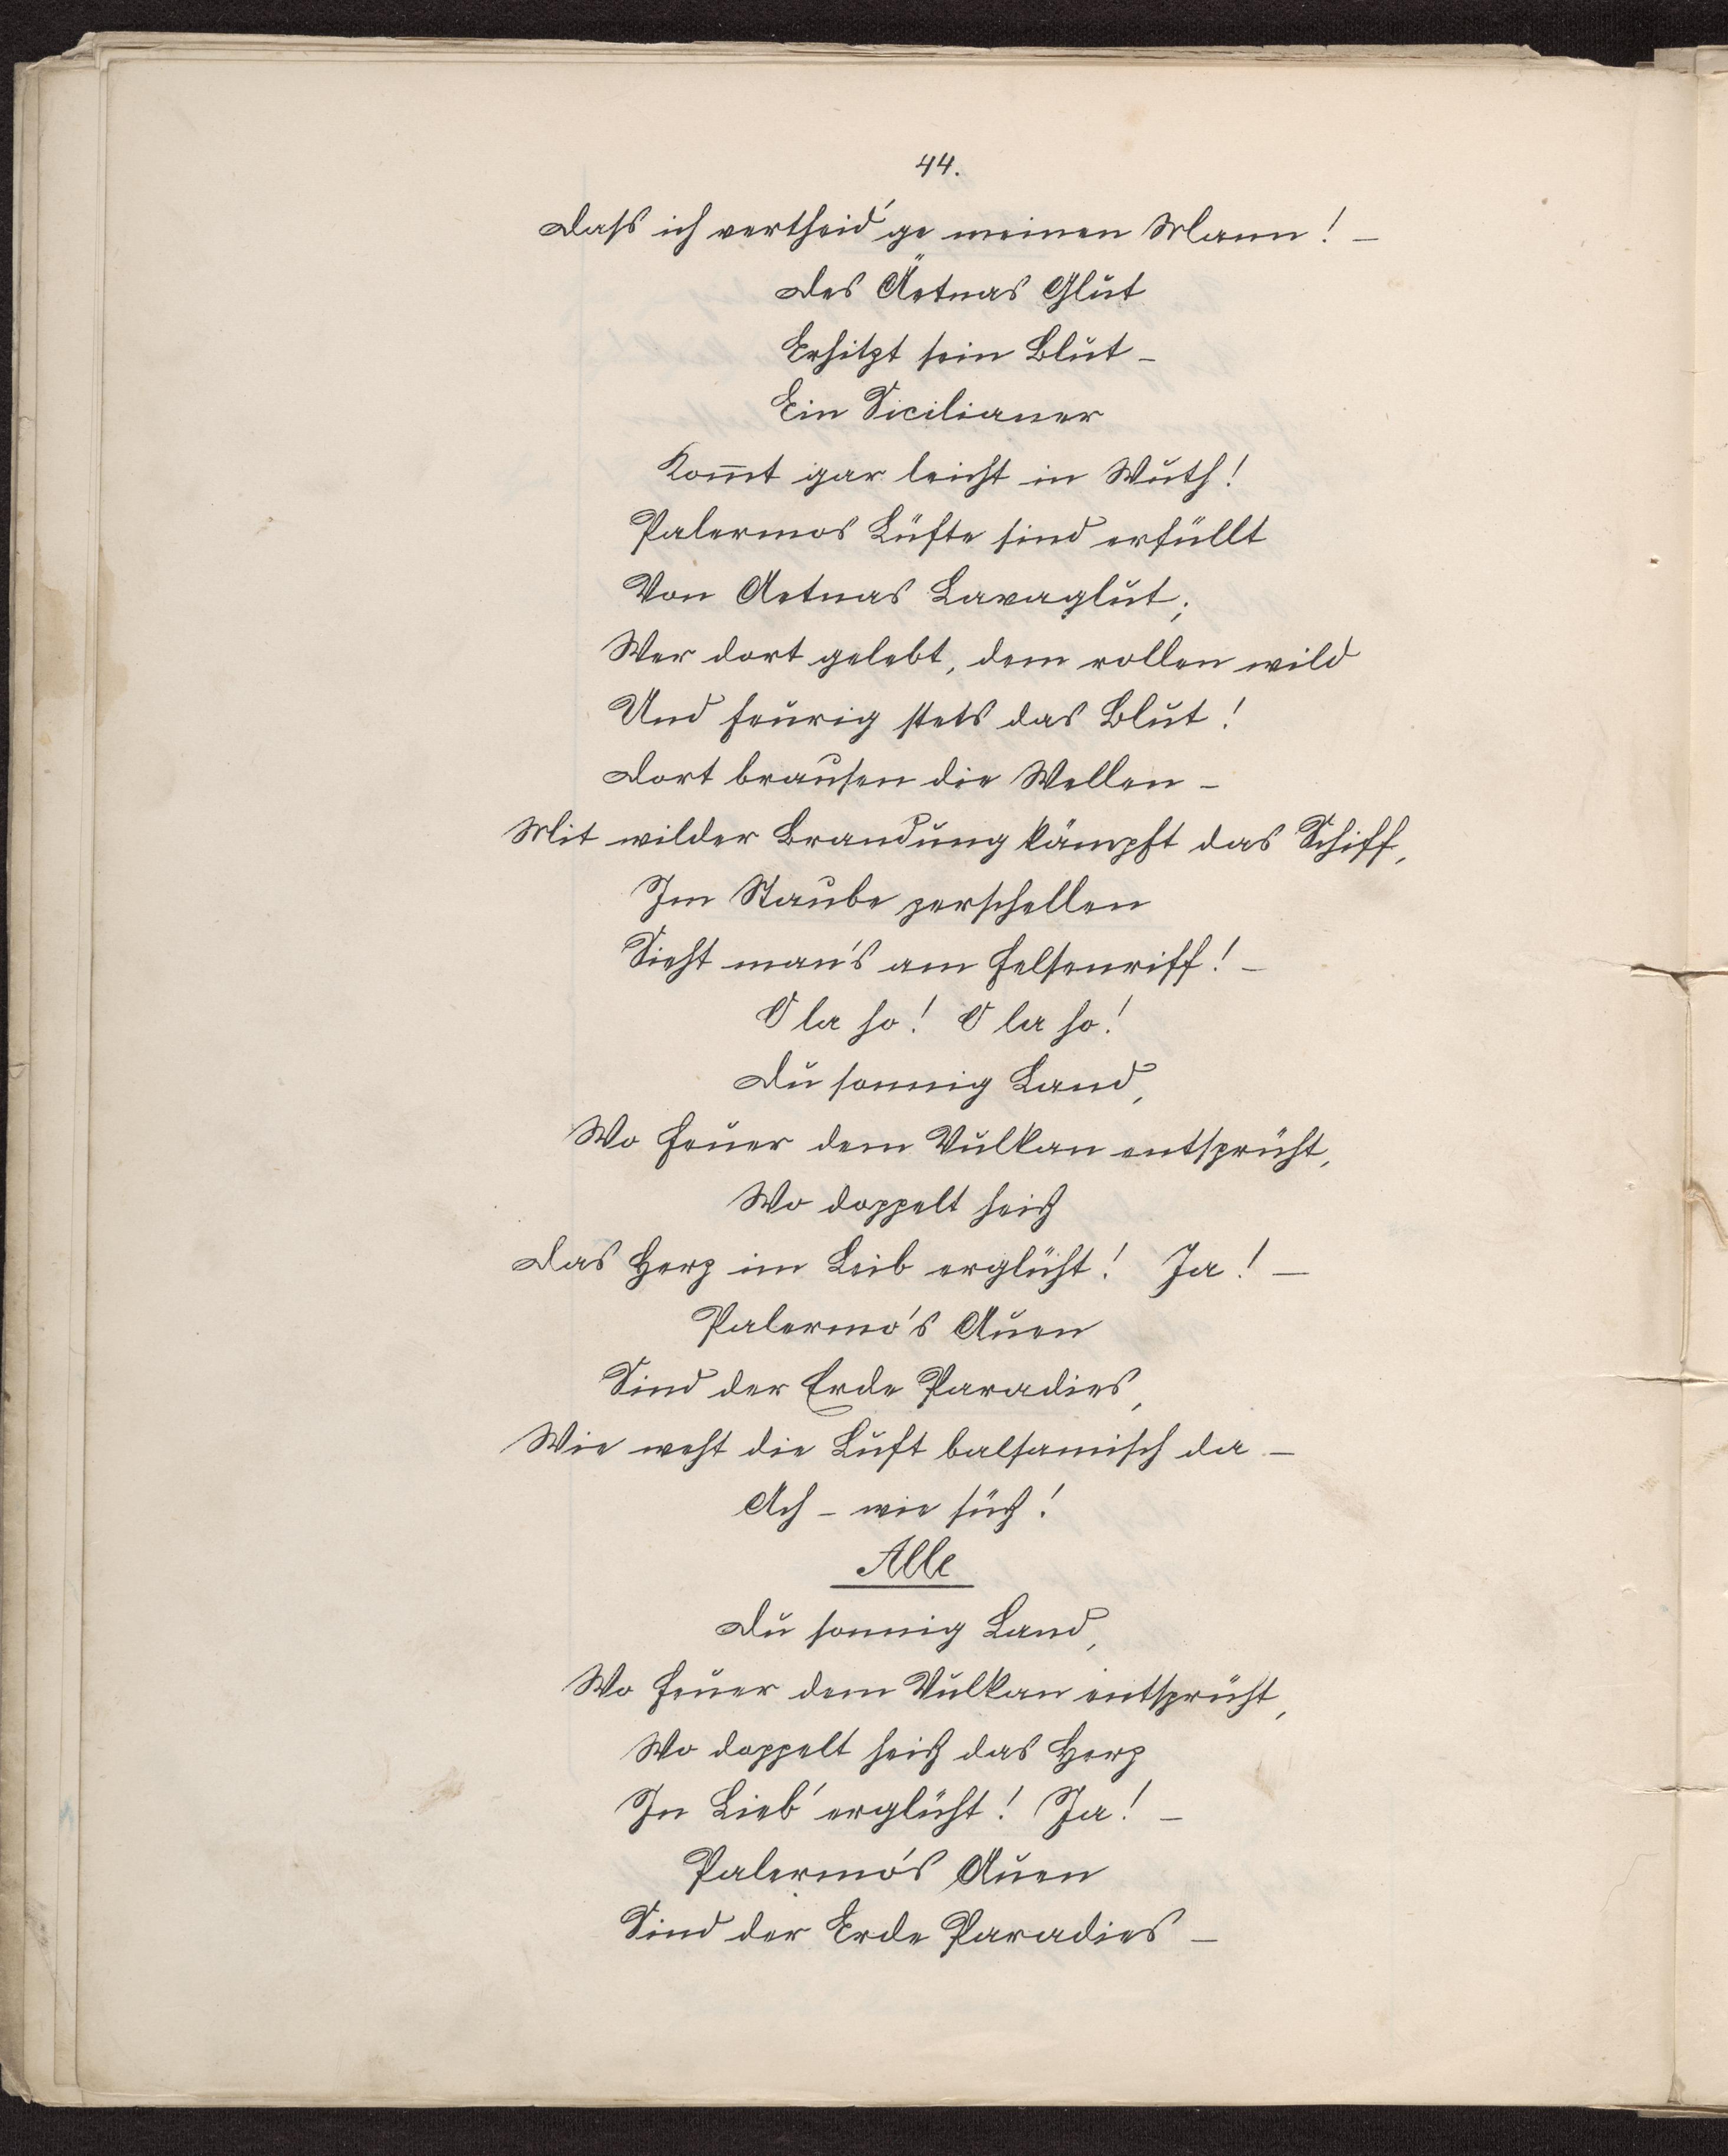 44.
Dass ich vertheid'ge meinen Mann! –
Des Äetnas Glut
Erhitzt sein Blut –
Ein Sicilianer
Kom̅t gar leicht in Wuth!
Palermos Lüfte sind erfüllt
Von Aetnas Lavaglut;
Wer dort gelebt, dem rollen wild
Und feurig stets das Blut!
Dort brausen die Wellen –
Mit wilder Brandung kämpft das Schiff,
Im Staube zerschellen
Sieht man's am Felsenriff! –
O la ho! O la ho!
Du sonnig Land,
Wo Feuer dem Vulkan entsprüht,
Wo doppelt heiß
Das Herz im Leib erglüht! Ja! –
Palermo's Auen
Sind der Erde Paradies,
Wie weht die Luft balsamisch da –
Ach – wie süß!
Alle
Du sonnig Land,
Wo Feuer dem Vulkan entsprüht,
Wo doppelt heiß das Herz
In Lieb' erglüht! Ja! –
Palermo's Auen
Sind der Erde Paradies –